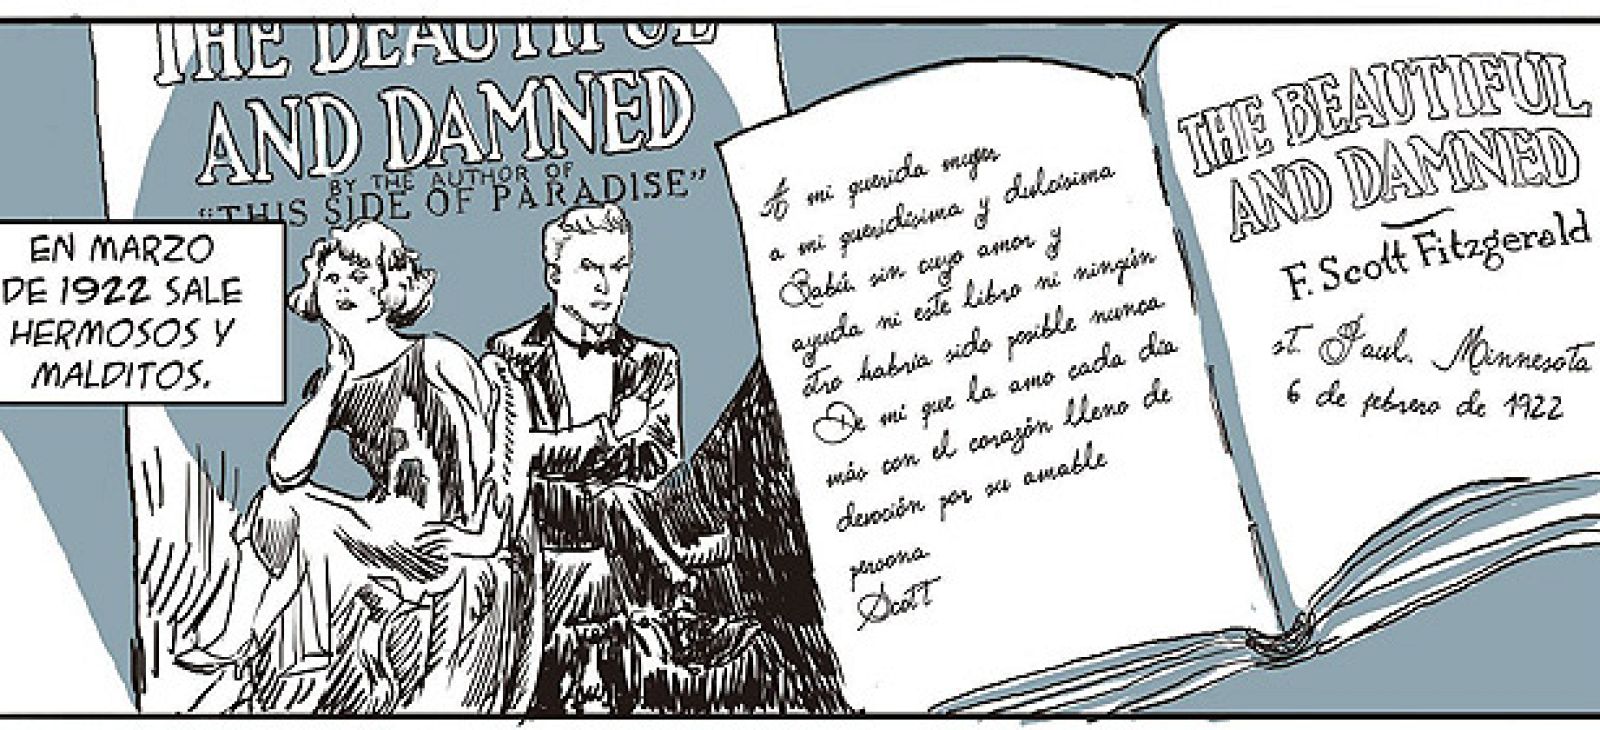 THE BEAUTIFUL
AND DAMNED
BY THE AUTHOR OF
"THIS SIDE OF PARADISE"
EN MARZO
DE 1922 SALE
HERMOSOS Y
MALDITOS.
A mi querida mujer
a mi queridísima y dulcísima
Babú sin cuyo amor y
ayuda ni este libro ni ningún
otro habría sido posible nunca
De mí que la amo cada día
más con el corazón lleno de
devoción por su amable
persona
Scott
THE BEAUTIFUL
AND DAMNED
F. Scott Fitzgerald
St. Paul. Minnesota
6 de febrero de 1922